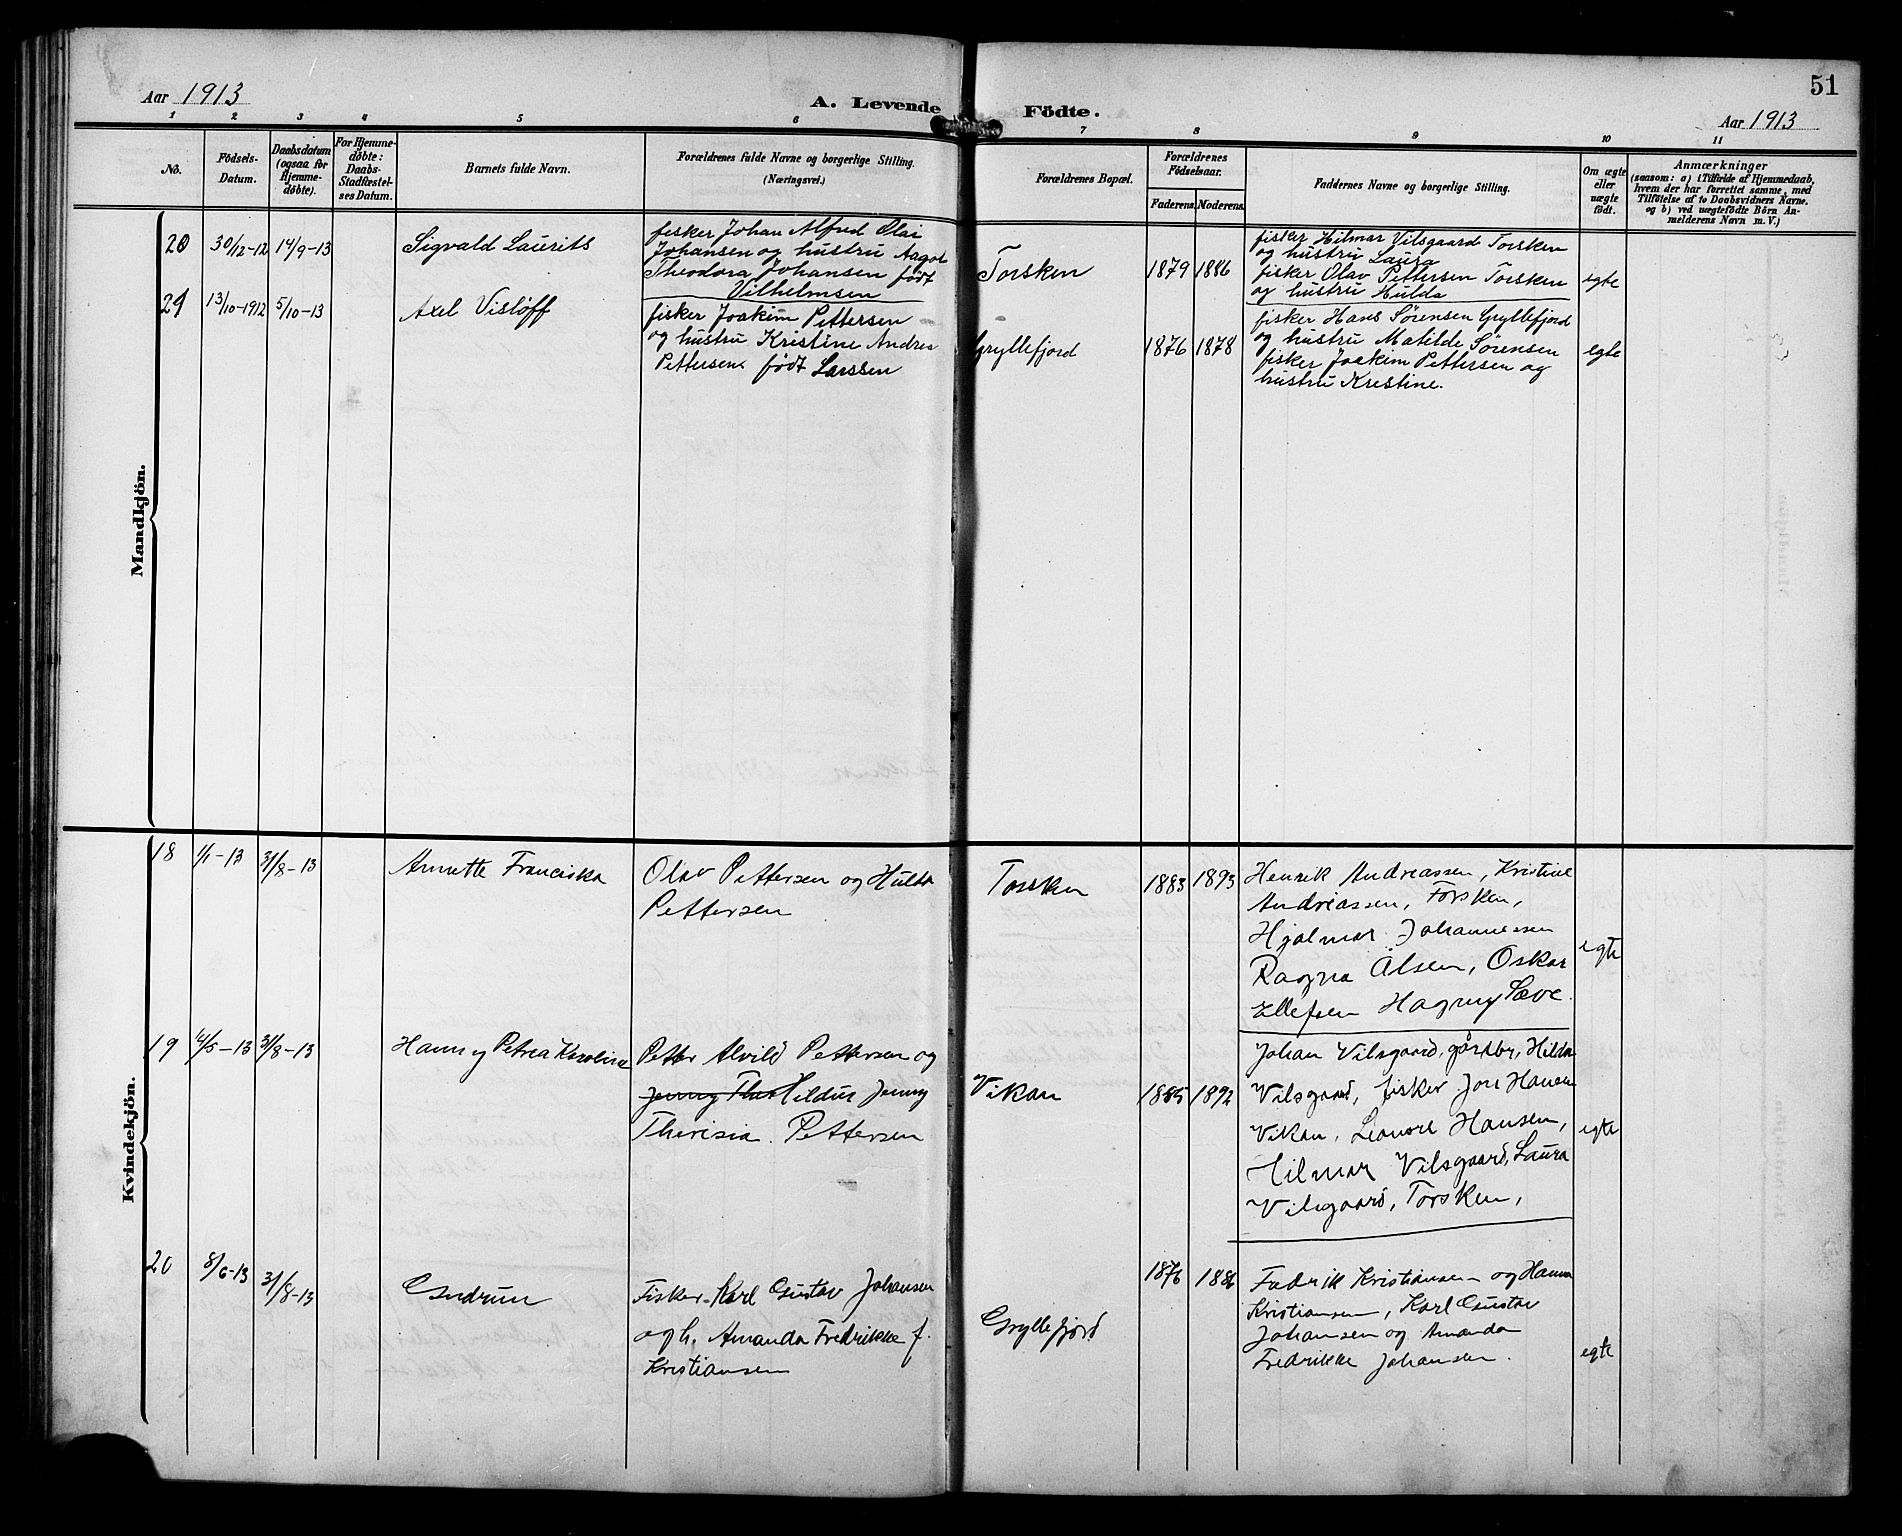 51
Aar 1913
A. Levende Födte.
Aar 1913
1 2 3 4 5 6 7 8 9 10 11
No.
Födsels-
Datum.
Daabsdatum
(ogsaa for
Hjemme-
döbte).
For Hjemme-
døbte:
Daabs-
Stadfæstel-
ses Datum.
Barnets fulde Navn.
Forældrenes fulde Navne og borgerlige Stilling.
(Næringsvei.)
Forældrenes Bopæl.
Forældrenes
Födselsaar.
Faderens. Moderens.
Faddernes Navne og borgerlige Stilling.
Om ægte
eller
uægte
født.
Anmærkninger
(saasom: a) i Tilfælde af Hjemmedaab,
hvem der har forrettet samme, med
Tilføielse af to Daabsvidners Navne,
og b) ved uægtefödte Börn An-
melderens Navn m. V.)
Mandkjön.
20 30/12-12 14/9-13
Sigvald Laurits
fisker Johan Alfred Olai
Johansen og hustru Aagot
Theodora Johansen født
Vilhelmsen
Torsken
1879 1886
fisker Hilmar Vilsgaard Torsken
og hustru Laura
fisker Olav Pettersen Torsken
og hustru Hulda
egte
21 13/10-1912 5/10-13
Axel Visløff
fisker Joakim Pettersen
og hustru Kristine Andrea
Pettersen født Larssen
Gryllefjord
1876 1878
fisker Hans Sørensen Gryllefjord
og hustru Matilde Sørensen
fisker Joakim Pettersen og
hustru Kristine.
egte
Kvindekjön.
18 1/1-13 31/8-13
Annette Franciska
Olav Pettersen og Hulda
Pettersen
Torsken
1883 1893
Henrik Andreassen, Kristine
Andreassen, Torsken,
Hjalmar Johannessen
Ragna Olsen, Oskar
Ellefsen Hagny Sæve.
egte
19 /5-13 31/8-13
Hanny Petrea Karoline
Petter Alvild Pettersen og
Jenny Hildur Jenny
Theresia. Pettersen
Vikan
1885 1892
Johan Vilsgaard, gårdbr, Hilda
Vilsgaard, fisker Jon Hansen
Vikan, Leonore Hansen,
Hilmar Vilsgaard, Laura
Vilsgaard, Torsken,
egte
20 8/6-13 31/8-13
Gudrun
Fisker Karl Gustav Johansen
og h. Amanda Fredrikke f.
Kristiansen
Gryllefjord
1876 1886
Fredrik Kristiansen og Hanna
Kristiansen, Karl Gustav
Johansen og Amanda
Fredrikke Johansen.
egte